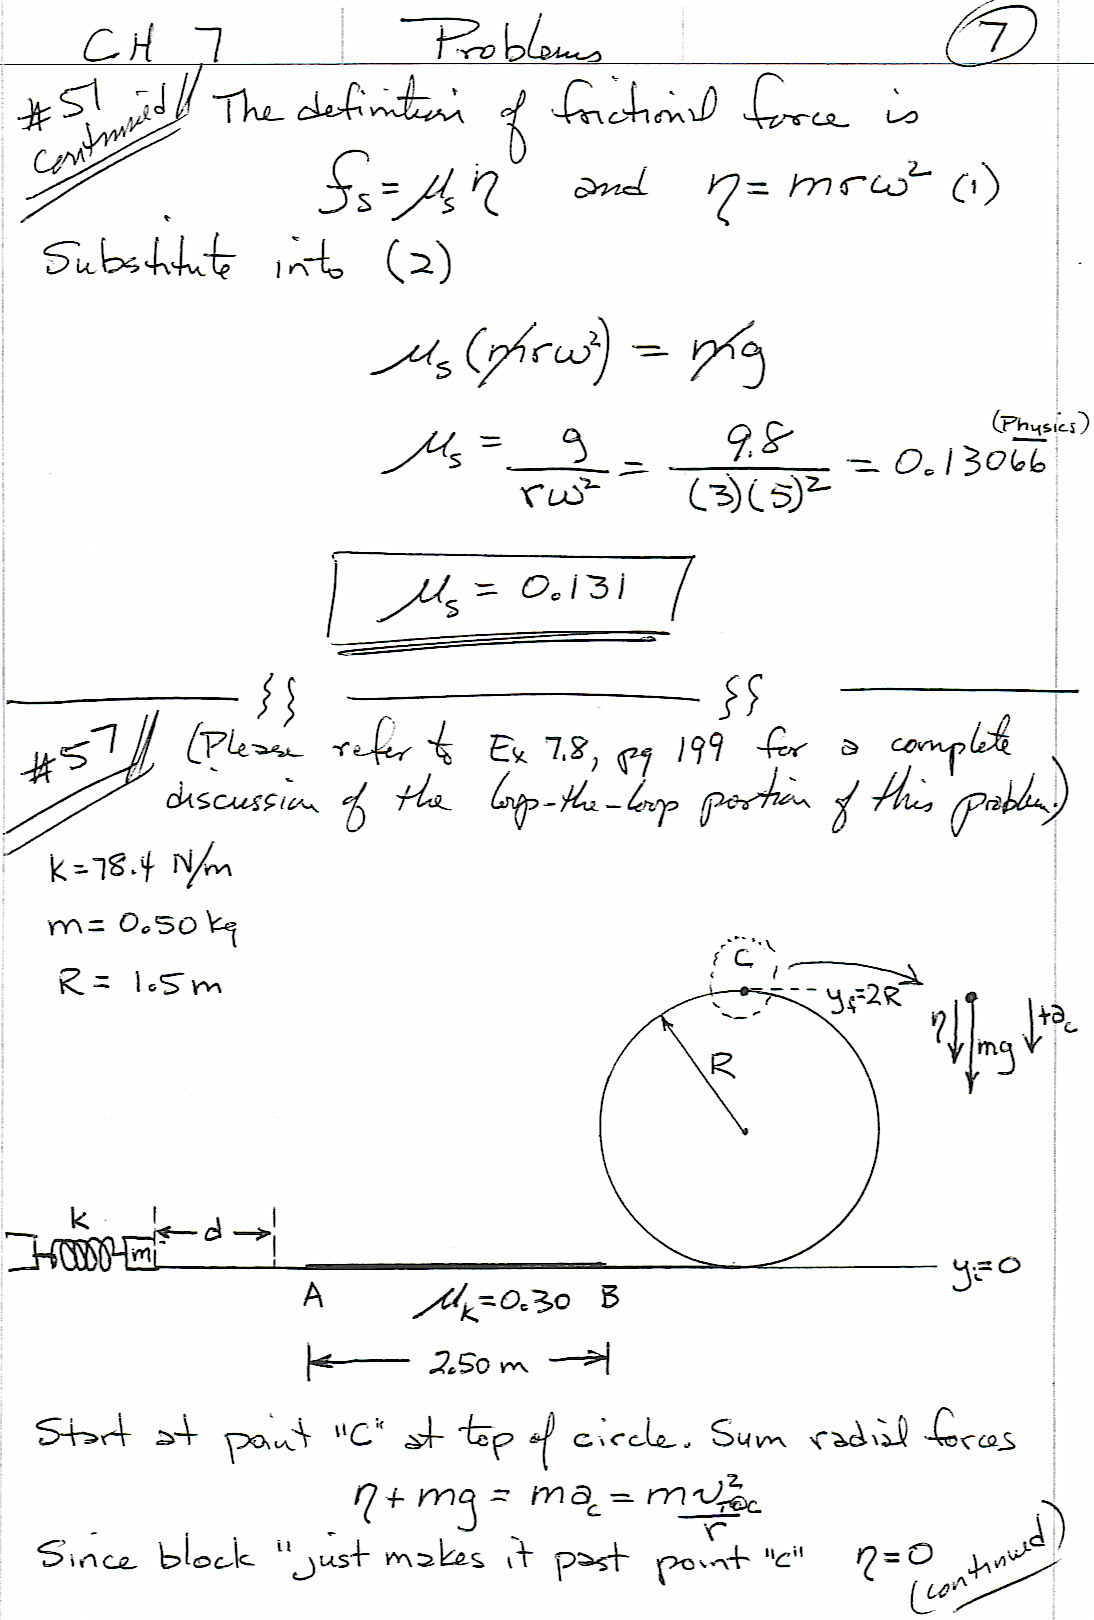 CH 7 Problems 7
#51 continued The definition of frictional force is
fs = μs η and η = mrω² (1)
Substitute into (2)
μs (mrω²) = mg
μs = g / rω² = 9.8 / (3)(5)² = 0.13066 (Physics)
μs = 0.131
#57 (Please refer to Ex 7.8, pg 199 for a complete
discussion of the loop-the-loop portion of this problem.)
k = 78.4 N/m
m = 0.50 kg
R = 1.5 m
C
yf = 2R
η mg +ac
R
k m d
yi = 0
A μk = 0.30 B
2.50 m
Start at point "C" at top of circle. Sum radial forces
η + mg = mac = m v²TOC / r
Since block "just makes it past point "C" η = 0
(continued)